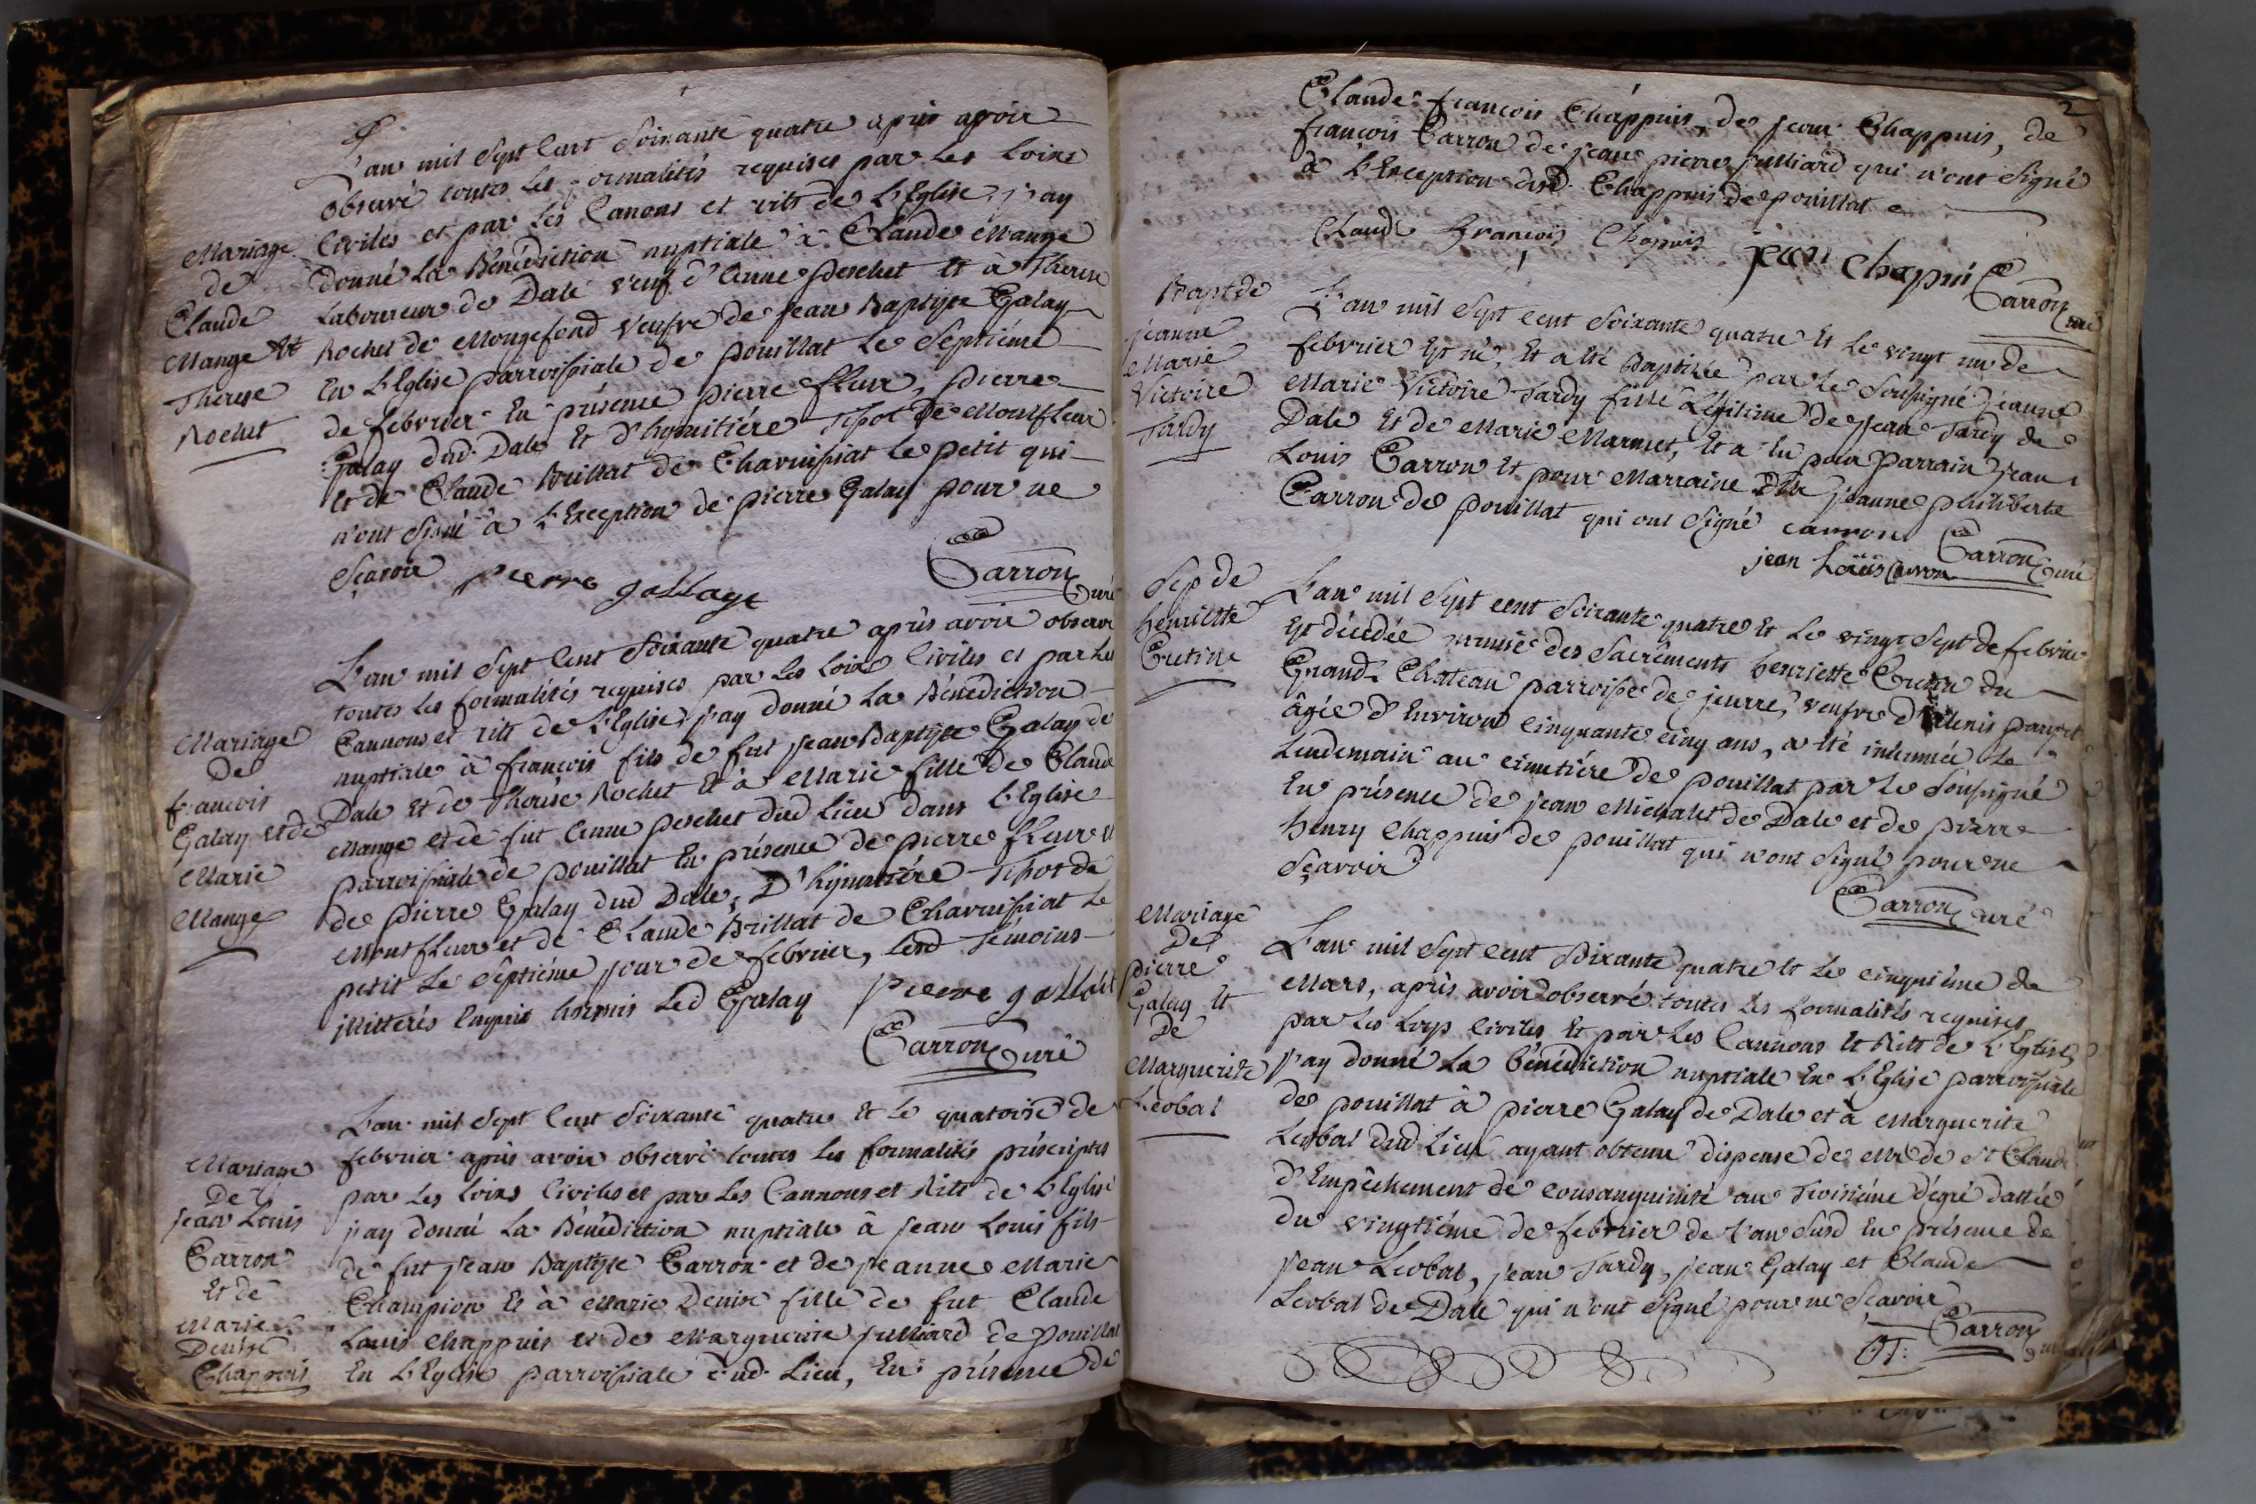 L'an mil sept cent soixante quatre après avoir
observé toutes les formalités requises par les loix
civiles et par les canons et rits de L'Eglise, j'ay
donné La Bénédiction nuptiale à Claude Mange
Laboureur de Dale veuf d'Anne peschet et à Therese
Rochet de Mongefond veufve de jean Baptiste Galay
en L'Eglise parroissiale de pouillat le septiéme
de febvrier en présence pierre fleur, pierre
Galay dud. Dale et d'hypoitiére Tifot de Montfleur
et de Claude Brillat de Charnissiat le petit qui
n'ont signé à L'Exception de pierre Galay pour ne
sçavoir
pierre gallage
Carron Curé
Mariage
de
Claude
Mange et
Therese
Rochet
L'an mil sept cent soixante quatre après avoir observé
toutes les formalités requises par les loix civiles et par les
Cannons et rits de L'Eglise, j'ay donné La Bénédiction
nuptiale à françois fils de fut jean Baptiste Galay de
Dale et de Therése Rochet et à Marie fille de Claude
Mange et de fut Anne peschet dud Lieu dans L'Eglise
parroissiale de pouillat en présence de pierre fleur et
de pierre Galay dud Dale, D' Tifot de
Montfleur et de Claude Brillat de Charnissiat le
petit le septiéme jour de febvrier, lesd témoins
jllitterés enquis hormis led Galay
pierre gallait
Carron Curé
Mariage
De
francois
Galay et de
Marie
Mange
L'an mil sept cent soixante quatre et le quatorze de
febvrier après avoir observé toutes les formalités préscriptes
par les loix civiles et par les Cannons et Rits de L'Eglise
j'ay donné La Bénédiction nuptiale à jean Louis fils
de fut jean Baptiste Carron et de jeanne Marie
Champion et à Marie Denise fille de fut Claude
Louis Chappuis et de Marguerite julliard de pouillat
en L'Eglise parroissiale dud. Lieu, en présence de
Mariage
De
jean Louis
Carron
et de
Marie
Denise
Chappuis
2
Claude françois Chappuis, de jean Chappuis, de
françois Carron de jean pierre julliard qui n'ont signé
à L'Exception desd. Chappuis de pouillat
Claude François Chapuis
jean Chapui
Carron curé
Bapt de
jeanne
Marie
Victoire
Tardy
L'an mil sept cent soixante quatre et le vingt un de
febvrier est né, et a été Baptizée par le soussigné jeanne
Marie Victoire Tardy fille Légitime de jean Tardy de
Dale et de Marie Marmet, et a eu pour parrain jean
Louis Carron et pour Marraine Dlle jeanne philiberte
Carron de pouillat qui ont signé
carron
jean Loüis Carron
Carron Curé
Sep de
henriette
Cretine
L'an mil sept cent soixante quatre et le vingt sept de febvrier
est décédée munie des sacrêments henriette Cretin du
Grand Chateau parroisse de jeurre, veufve
âgée d'environ cinquante cinq ans, a été inhumée le
Lendemain au cimetiére de pouillat par le soussigné
en présence de jean Michalet de Dale et de pierre
henry Chappuis de pouillat qui n'ont signé pour ne
sçavoir
Carron Curé
Mariage
De
pierre
Galay et
De
Marguerite
Leobal
L'an mil sept cent soixante quatre et le cinquiéme de
Mars, après avoir observé toutes les formalités requises
par les Loyx civiles et par les Cannons et Rits de L'Eglise
j'ay donné La Bénédiction nuptiale en L'Eglise parroissiale
de pouillat à pierre Galay de Dale et à Marguerite
Leobal dud Lieu ayant obtenu dispense de Mr de St Claude
d'Empêchement de consanguinité au troisiéme dégré dattée
du vingtiéme de febvrier de l'an susd en présence de
jean Leobal, jean Tardy, jean Galay et Claude
Leobal de Dale qui n'ont signé pour ne sçavoir
Carron